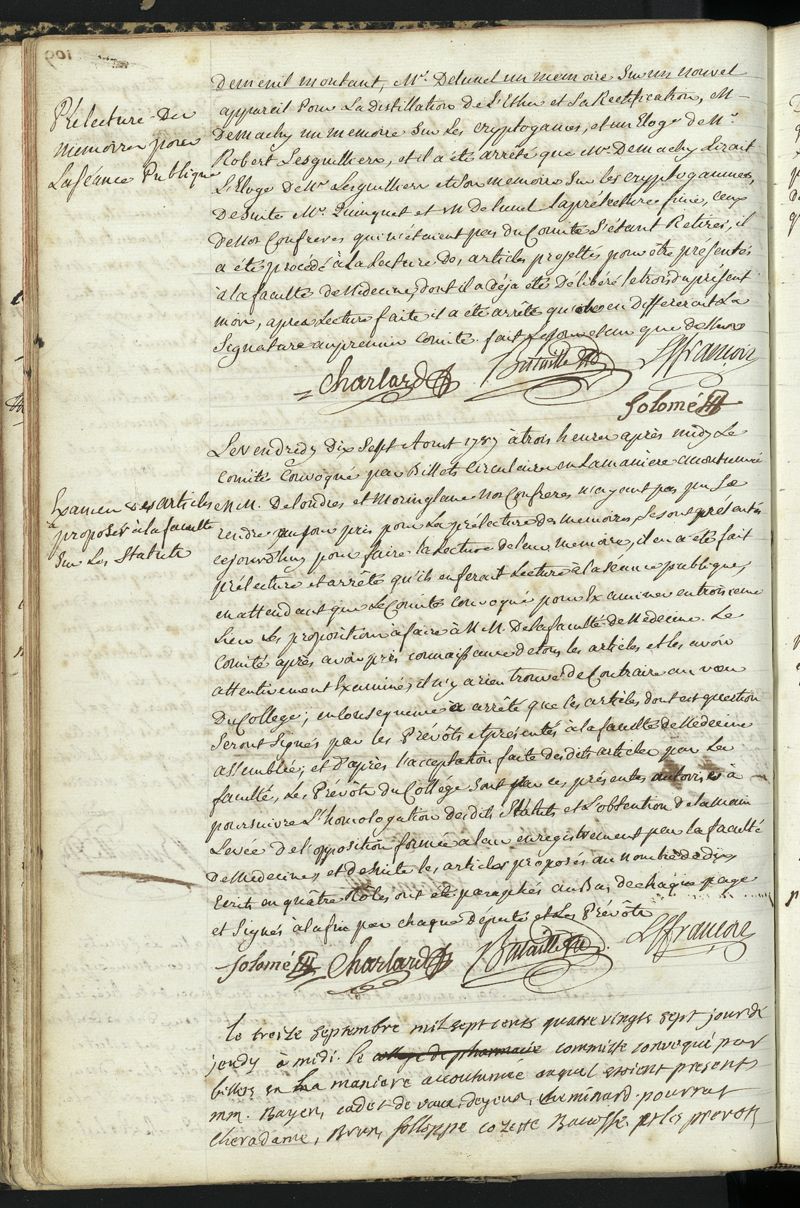 109
Prélecture Des
memoires pour
La séance Publique
de menil montant, Mr. Delunel un memoire Sur un nouvel
appareil Pour La Distillation de L'Ether et Sa Rectification, M.
Demachy un memoire Sur Les cryptogames, et un Eloge de Mr.
Robert Lesguilliere, et il a été arrêté que Mr. Demachy Lirait
L'Eloge De Mr. Lesguilliere et Son memoire Sur les cryptogammes,
De Suite Mr. Quinquet et M delunel la prélecture finie, ceux
De Nos Confreres qui n'étaient pas du Comité S'étant Retirés, il
a été procédé à La Lecture Des articles projettés pour être présentés
à la faculté de Médecine, dont il a déja été délibéré le trois du présent
mois, après Lecture faite il a été arrêté qu'on en Differerait La
Signature au premier comité fait les jour et an que dessus
Charlard Bataille Lffrançois
Solomé
Le Vendredy Dix Sept Aoust 1787 à trois heures après midy Le
Comité Convoqué par Billets Circulaires en La maniere accoutumée
Examen des articles
proposés à la faculté
Sur Les Statuts
MM. De Londres et Moringlane Nos Confreres n'ayant pas pu Se
rendre au jour pris pour La prélecture des memoires, Se sont présentés
cejourd'huy pour faire la Lecture de leur memoire, il en a été fait
prélecture et arrêté qu'ils en ferait Lecture à la séance publique,
en attendant que Le Comité Convoqué pour Examiner en troisieme
Lieu Les propositions à faire à MM. De la faculté de Médecine. Le
Comité après avoir pris connaissance de tous les articles et les avoir
attentivement Examinés, il n'y a rien trouvé de Contraire au vœu
Du College; en Consequence a arrêté que les articles dont est question
Seront Signés par les Prévôts et présentés à la faculté de Médecine
assemblée, et d'après l'acceptation faite des dits articles par La
faculté, Les Prévôts Du Collége Sont par ces présentes autorisés à
poursuivre L'homologation desdits Statuts et L'obtention de la main
Levée De l'opposition formée à leur enregistrement par la faculté
De Médecine, et de Suite les articles proposés au nombre de dix
Ecrits en quatre Rôles ont été paraphés au Bas de chaque page
et Signés à la fin par chaque Député et Les Prévôts
Solomé Charlard Bataille Lffrançois
le treize septembre mil sept cents quatre vingts sept jour de
jeudy à midi. le college de pharmacie committé convoqué par
billets en la maniere accoutumée auquel etoient presents
mm. Bayen, cadet de vaux, deyeux, cheminard. pourrat
cheradame, Brun, folloppe cozette Bacoffe et les prevots